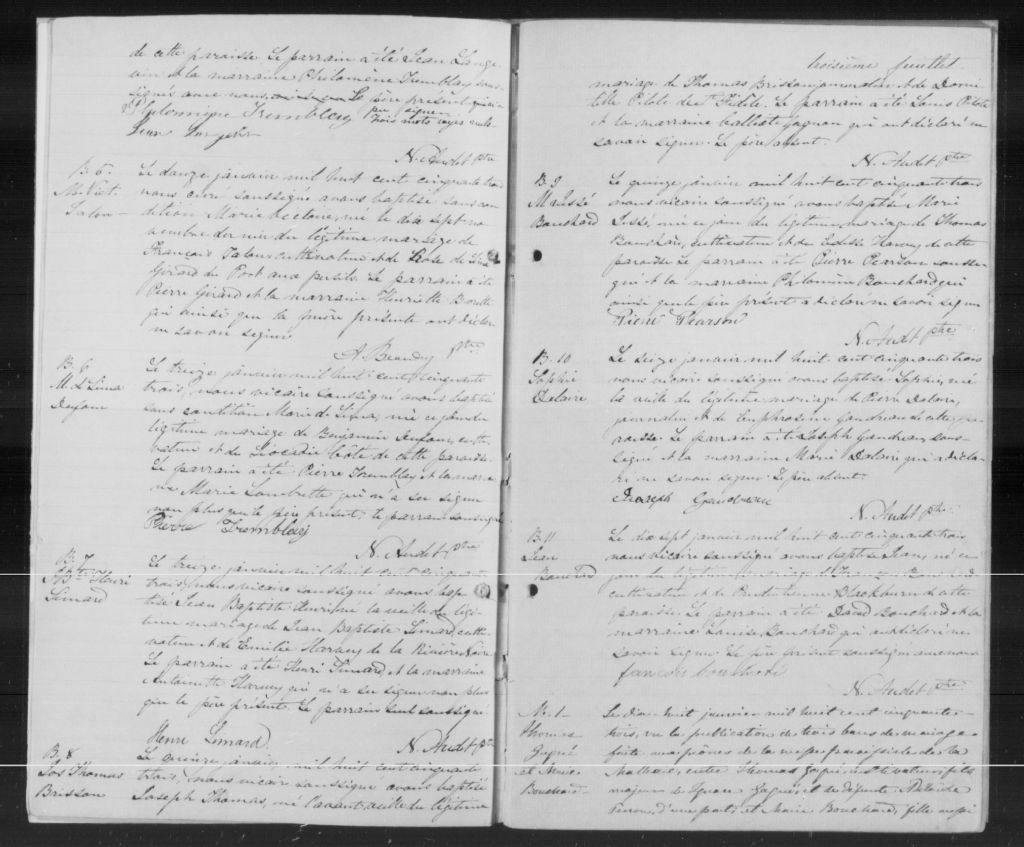 de cette paroisse Le parrain a été Jean Lange
vin et la marraine Philomène Tremblay sous
signés avec nous, Le père présent n'a
pu signer
Philomène Tremblay trois mots rayés nuls
N. Audet Ptre
B. 5.
M. Vict.
Le douze janvier mil huit cent cinquante trois
nous curé soussigné avons baptisé sous con
dition Marie née le dix sept no
vembre dernier du légitime mariage de
François cultivateur et de
Girard du Port aux persils. Le parrain a été
Pierre Girard et la marraine Henriette
qui ainsi que la mère présente ont déclaré
ne savoir signer.
A. Beaudry Ptre
B. 6
M. d. Lima
Dufour
Le treize janvier mil huit cent cinquante
trois, nous vicaire soussigné avons baptisé
sous condition Marie de Lima, née ce jour du
légitime mariage de Benjamin Dufour, culti
vateur et de Léocadie Côté de cette paroisse.
Le parrain a été Pierre Tremblay et la marrai
ne Marie qui n'a su signer
non plus que le père présent, le parrain soussigné
Pierre Tremblay
N. Audet Ptre
B. 7
J. Bte Henri
Simard
Le treize janvier mil huit cent cinquante
trois, nous vicaire soussigné avons bap
tisé Jean Baptiste Henri né la veille du légi
time mariage de Jean Baptiste Simard, culti
vateur et de Emilie Harvey de la Rivière Noire
Le parrain a été Henri Simard, et la marraine
Antoinette Harvey qui n'a su signer non plus
que le père présent. Le parrain seul soussigné
Henri Simard.
N. Audet Ptre
B. 8
Jos Thomas
Brisson
Le quinze janvier mil huit cent cinquante
trois, nous vicaire soussigné avons baptisé
Joseph Thomas, né l'avant veille du légitime
troisième feuillet.
mariage de Thomas Brisson journalier et de Domi
tille Pilote de Ste Fidèle. Le parrain a été Louis Pilote
et la marraine Calliste Gagnon qui ont déclaré ne
savoir signer. Le père absent.
N. Audet Ptre
B. 9
Bouchard
Le quinze janvier mil huit cent cinquante trois
nous vicaire soussigné avons baptisé Marie
née ce jour du légitime mariage de Thomas
Bouchard, cultivateur et de Harvey de cette
paroisse Le parrain a été Pierre Pearson soussi
gné et la marraine Philomène Bouchard qui
ainsi que le père présent a déclaré ne savoir signer
Pierre Pearson
N. Audet Ptre
B. 10
Sophie
Delaire
Le seize janvier mil huit cent cinquante trois
nous vicaire soussigné avons baptisé Sophie, née
la veille du légitime mariage de Pierre Delaire,
journalier et de Euphrosine Gaudreau de cette pa
roisse. Le parrain a été Joseph Gaudreau, sous
signé et la marraine Marie Delaire qui a décla
ré ne savoir signer. Le père absent.
Joseph Gaudreau
N. Audet Ptre
B. 11
Jean
Bouchard
Le dix sept janvier mil huit cent cinquante trois
nous vicaire soussigné avons baptisé Jean, né ce
jour du légitime mariage de François Bouchard
cultivateur et de Blackburn de cette
paroisse. Le parrain a été David Bouchard et la
marraine Louise Bouchard qui ont déclaré ne
savoir signer. Le père présent soussigné avec nous
N. Audet Ptre
M. 1
Thomas
Gagné
et Marie
Bouchard
Le dix huit janvier mil huit cent cinquante
trois, vu la publication de trois bans de mariage
faite aux prônes de la messe paroissiale de la
Malbaie, entre Thomas Gagné cultivateur fils
majeur de Ignace Gagné et de défunte Adélaïde
d'une part; et Marie Bouchard, fille aussi